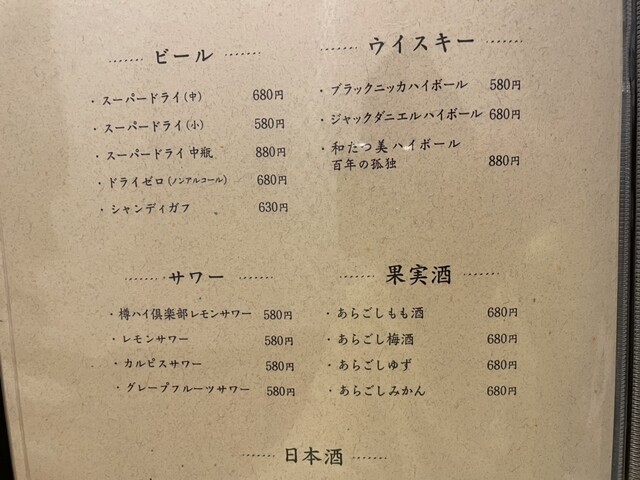 ビール
・スーパードライ(中) 680円
・スーパードライ(小) 580円
・スーパードライ中瓶 880円
・ドライゼロ(ノンアルコール) 680円
・シャンディガフ 630円
ウイスキー
・ブラックニッカハイボール 580円
・ジャックダニエルハイボール 680円
・和たつ美ハイボール
百年の孤独 880円
サワー
・樽ハイ倶楽部レモンサワー 580円
・レモンサワー 580円
・カルピスサワー 580円
・グレープフルーツサワー 580円
果実酒
・あらごしもも酒 680円
・あらごし梅酒 680円
・あらごしゆず 680円
・あらごしみかん 680円
日本酒